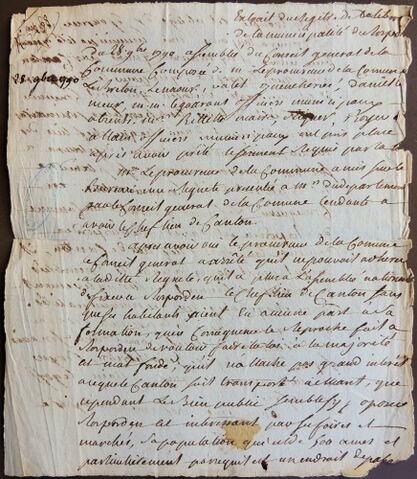 Extrait du Registre de Deliber
de la municipalité de Rosporden
Du 28 9bre 1790 assemblée du Conseil general de la
28 9bre 1790
Commune Composé de m. Le procureur de la Commune
Le Breton, valet
m. m. Legadrant officiers municipaux
maire
officiers municipaux ont pris place
après avoir prété le serment Requis par la
m. Le procureur de la Commune a mis sur le
Bureau une Requete presentée a mrs du departement
par le Conseil general de la Commune tendante a
avoir le chef lieu de Canton.
apres avoir oui le procureur de la Commune
le Conseil general a arrêté qu'il ne pouvoit adherer
a la ditte Requete qu'il a plu a L'assemblée nationale
de fixer a Rosporden le chef lieu de Canton sans
que ses habitants aient eu aucune part a sa
formation, qu'en Consequence le Reproche fait a
Rosporden de vouloir faire la loi a la majorité
est mal fondé, qu'il n'attache pas grand interest
a ce que le Canton soit transporté a Elliant, que
cependant Le Bien public semble s'y opposer
Rosporden est interessant par ses foires et
marchés, sa population qui est de 800 ames et
particulierement parce qu'il est un endroit de passa